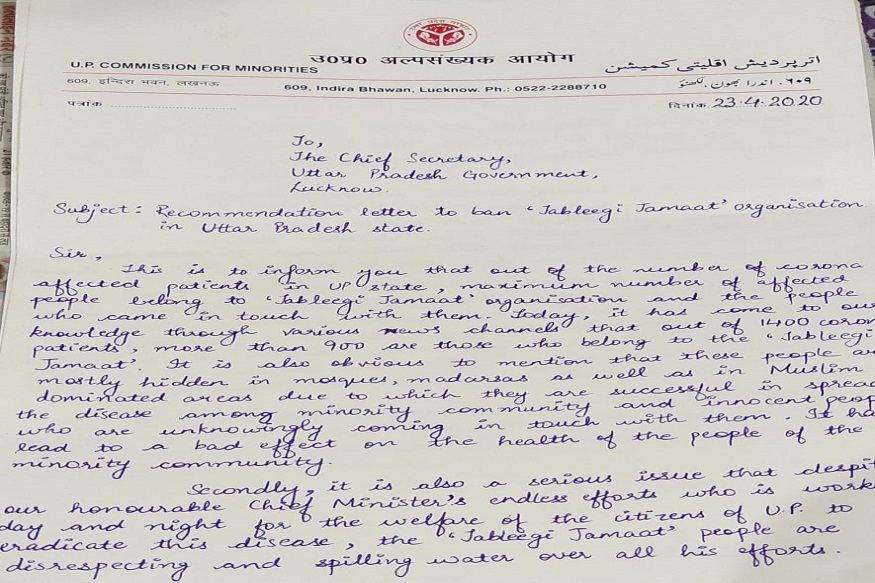 उ०प्र० अल्पसंख्यक आयोग
U.P. COMMISSION FOR MINORITIES
اتر پردیش اقلیتی کمیشن
609, इन्दिरा भवन, लखनऊ
609, Indira Bhawan, Lucknow. Ph.: 0522-2288710
۶۰۹، اندرا بھون، لکھنؤ
पत्रांक ..............................
दिनांक 23.4.2020
To,
The Chief Secretary,
Uttar Pradesh Government,
Lucknow.
Subject: Recommendation letter to ban 'Tableegi Jamaat' organisation
in Uttar Pradesh state.
Sir,
This is to inform you that out of the number of corona
affected patients in UP state, maximum number of affected
people belong to 'Tableegi Jamaat' organisation and the people
who came in touch with them. Today, it has come to our
knowledge through various news channels that out of 1400 coron
patients, more than 900 are those who belong to the 'Tableegi
Jamaat'. It is also obvious to mention that these people are
mostly hidden in mosques, madarsas as well as in Muslim
dominated areas due to which they are successful in spread
the disease among minority community and innocent peop
who are unknowingly coming in touch with them. It ha
lead to a bad effect on the health of the people of the
minority community.
Secondly, it is also a serious issue that despit
our honourable Chief Minister's endless efforts who is work
day and night for the welfare of the citizens of U.P. to
eradicate this disease, the 'Tableegi Jamaat' people are
disrespecting and spilling water over all his efforts.